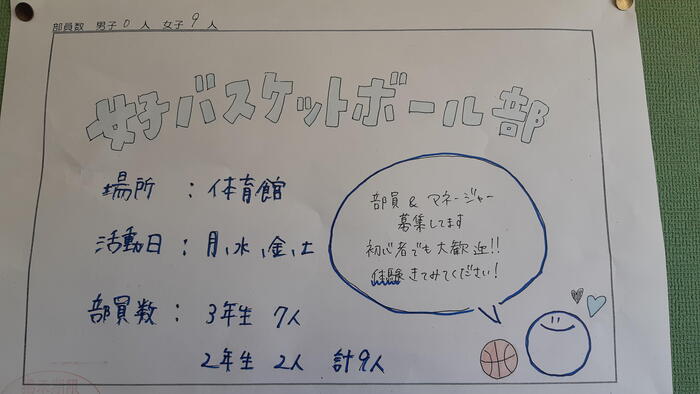 部員数 男子 0 人 女子 9 人
女子バスケットボール部
場所 : 体育館
活動日 : 月、水、金、土
部員数 : 3年生 7人
2年生 2人 計9人
部員 & マネージャー
募集してます
初心者でも大歓迎!!
体験きてみてください!